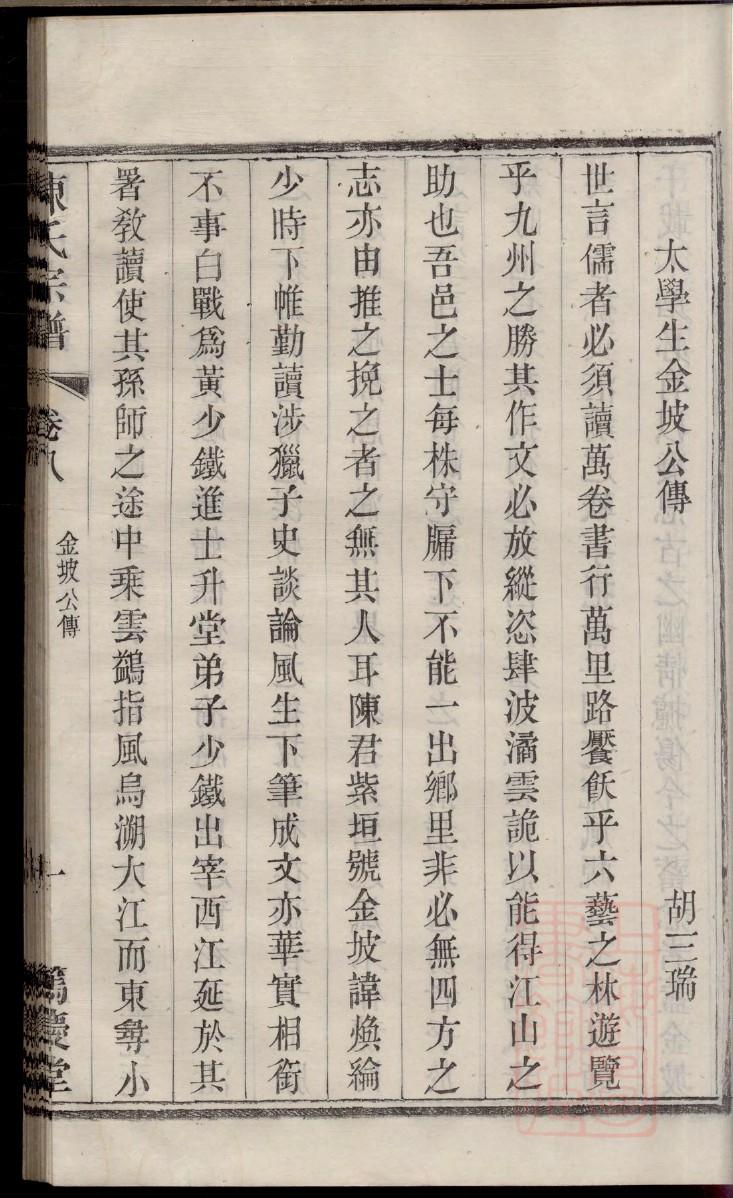 太學生金坡公傳 胡三瑞
世言儒者必須讀萬卷書行萬里路饜飫乎六藝之林遊覽
乎九州之勝其作文必放縱恣肆波潏雲詭以能得江山之
助也吾邑之士每株守牖下不能一出鄉里非必無四方之
志亦由推之挽之者之無其人耳陳君紫垣號金坡諱煥綸
少時下帷勤讀涉獵子史談論風生下筆成文亦華實相銜
不事白戰爲黃少鐵進士升堂弟子少鐵出宰西江延於其
署教讀使其孫師之途中乘雲鷁指風烏溯大江而東尋小
陳氏宗譜 卷八 金坡公傳 一 篤慶堂